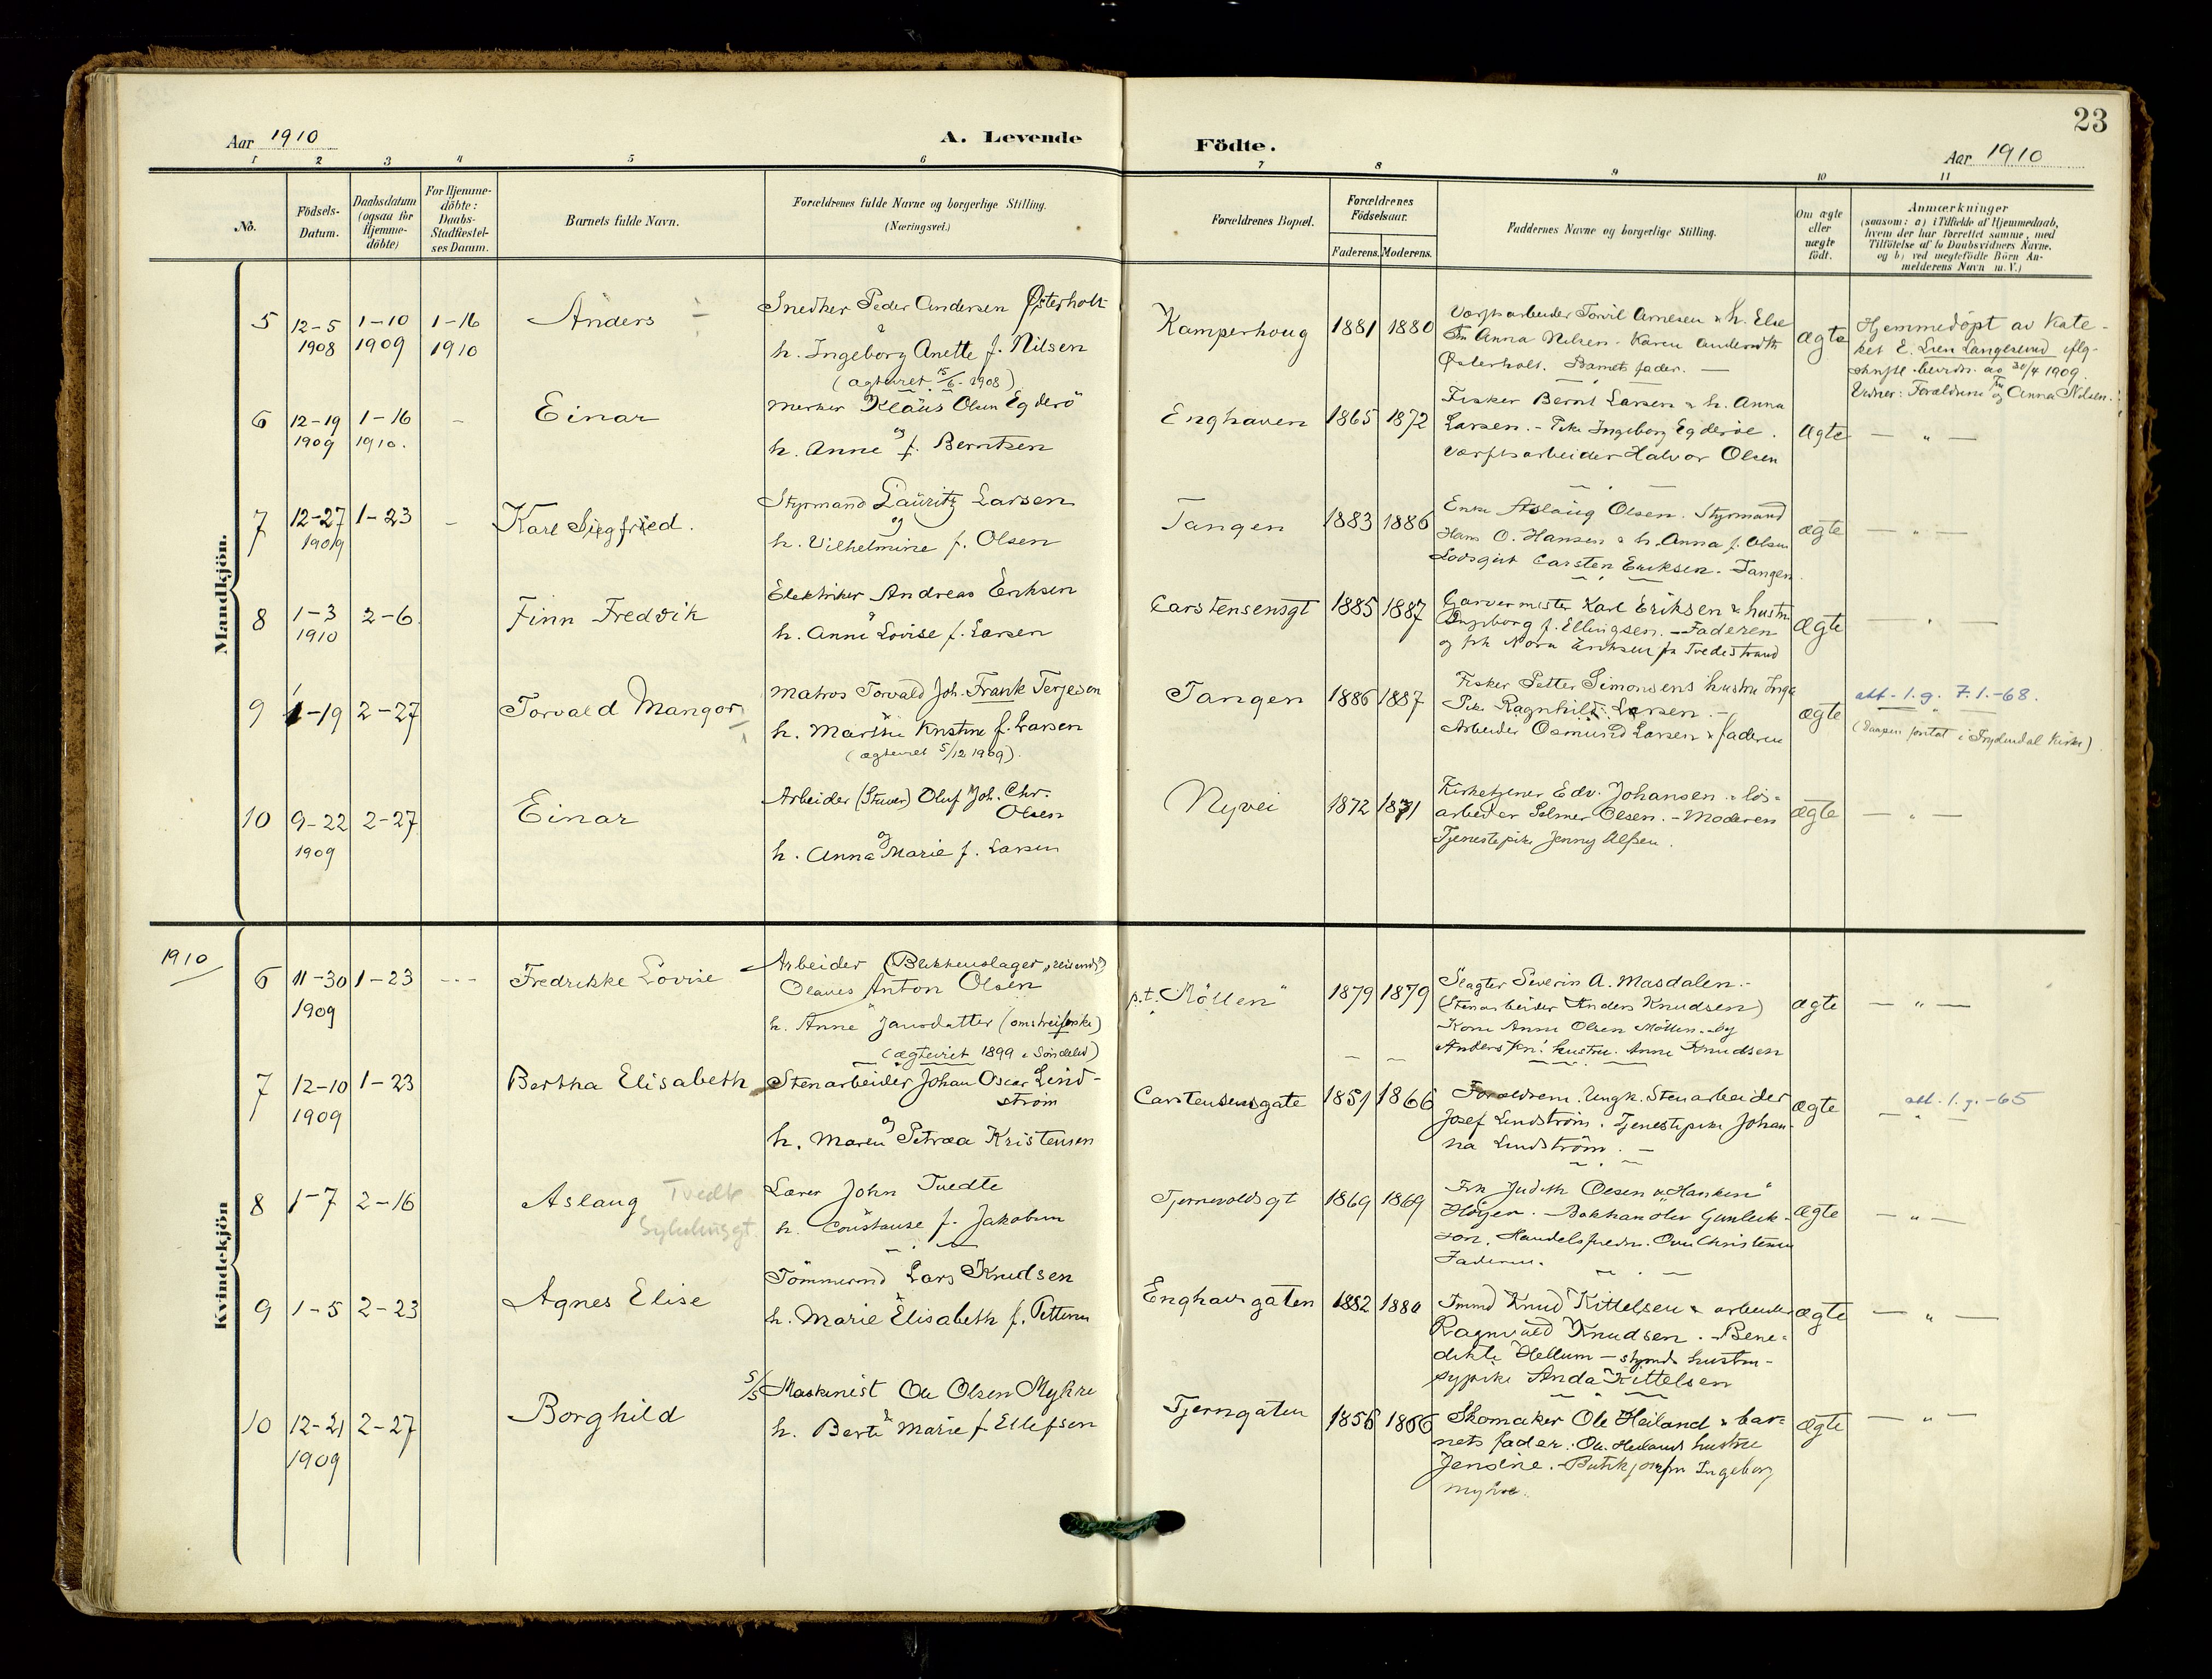 23
Aar 1910
A. Levende Födte.
Aar 1910
1 2 3 4 5 6 7 8 9 10 11
No.
Födsels-Datum.
Daabsdatum (ogsaa for Hjemme-döbte)
For Hjemme-döbte: Daabs-Stadfæstel-ses Datum.
Barnets fulde Navn.
Forældrenes fulde Navne og borgerlige Stilling.
(Næringsvei.)
Forældrenes Bopæl.
Forældrenes Födselsaar.
Faderens. Moderens.
Faddernes Navne og borgerlige Stilling.
Om ægte eller uægte födt.
Anmærkninger
(saasom: a) i Tilfælde af Hjemmedaab,
hvem der har forrettet samme, med
Tilföielse af to Daabsvidners Navne.
og b) ved uægtefödte Börn An-
melderens Navn m. V.)
Mandkjön.
5 12-5 1908 1-10 1909 1-16 1910 Anders
Snedker Peder Andersen Østerholt
&
h. Ingeborg Anette f. Nilsen
(ægteviet 15/6-1908)
Kamperhoug 1881 1880
Værftsarbeider Torvil Arnesen & h. Else
Fru Anna Nilsen - Karen Andersdtr
Østerholt. Barnets fader. —
ægte
Hjemmedöpt av Kate-
ket E. Lien Langesund iflg.
skriftl. bevidn. av 30/4 1909.
Vidner: Forældrene og Fru Anna Nilsen.
6 12-19 1909 1-16 1910. - Einar
Merker Klaus Olsen Egderö
og
h. Anne f. Berntsen
Enghaven 1865 1872
Fisker Bernt Larsen & h. Anna
Larsen. - Pike Ingeborg Egderöe.
Værftsarbeider Halvor Olsen
ægte — " —
7 12-27 1909 1-23 - Karl Siegfried.
Styrmand Lauritz Larsen
og
h. Vilhelmine f. Olsen
Tangen 1883 1886
Enke Aslaug Olsen. Styrmand
Hans O. Hansen & h. Anna f. Olsen
Lodsgut Carsten Eriksen. Tangen.
ægte — " —
8 1-3 1910 2-6 Finn Fredrik
Elektriker Andreas Eriksen
&
h. Anne Lovise f. Larsen
Carstensensgt 1885 1887
Garvermester Karl Eriksen & hustru
Ingeborg f. Ellingsen. - Faderen
og frk Nora Eriksen fra Tvedestrand
ægte — " —
9 1-19 2-27 Torvald Mangor
Matros Torvald Joh. Frank Terjesen
&
h. Marthe Kristine f. Larsen
(ægteviet 5/12 1909).
Tangen 1886 1887
Fisker Petter Simonsens hustru Inga
Pike Ragnhild Larsen. -
Arbeider Osmund Larsen & faderen
ægte
att. 1. g. 7.1.-68.
— " —
(Daapen forrettet i Frydendal Kirke).
10 9-22 1909 2-27 Einar
Arbeider (Stuer) Oluf Joh. Chr.
Olsen
og
h. Anna Marie f. Larsen
Nyvei 1872 1871
Kirketjener Edv. Johansen. - lös-
arbeider Selmer Olsen. - Moderen
Tjenestepike Jenny Alfsen.
ægte — " —
1910
Kvindekjön
6 11-30 1909 1-23 --- Fredrikke Lovise
Arbeider (Blikkenslager, "reisende")
Olaves Anton Olsen
"
h. Anne Jansdatter (omstreiferske)
(ægteviet 1899 i Söndeled)
p.t. "Möllen" 1879 1879
Slagter Severin A. Masdalen. -
(Stenarbeider Anders Knudsen)
Kone Anne Olsen Möllen. - og
Anders Kn.' hustru. Anne Knudsen
ægte — " —
7 12-10 1909 1-23 Bertha Elisabeth
Stenarbeider Johan Oscar Lind-
ström
og
h. Maren Petrea Kristensen
Carstensensgate 1859 1866
Forældrene. Ungk. Stenarbeider
Josef Lindström. Tjenestepike Johan-
na Lindström. -
ægte
att. 1. g. -65
— " —
8 1-7 2-16 Aslaug Tvedte
Sykehusgt.
Lærer John Tvedte
&
h. Constanse f. Jakobsen
Tjernvoldsgt 1869 1869
Frk Judith Olsen "Hanken"
Höyer. - Bokhandler Gunleik-
son. Handelsfuldm. Ove Christensen
Faderen.
ægte — " —
9 1-5 2-23 Agnes Elise
Tömmermd Lars Knudsen
&
h. Marie Elisabeth f. Pettersen
Enghavegaten 1882 1880
Tmmd Knud Kittelsen & arbeider
Ragnvald Knudsen. - Bene-
dikte Hellum - styrmds hustru -
sypike Anda Kittelsen
ægte — " —
10 12-21 1909 2-27 Borghild
S/S Maskinist Ole Olsen Myhre
&
h. Berte Marie f. Ellefsen
Tjerngaten 1856 1866
Skomaker Ole Heiland & bar-
nets fader. Ole Heilands hustru
Jensine. - Butikjomfru Ingeborg
Myhre.
ægte — " —